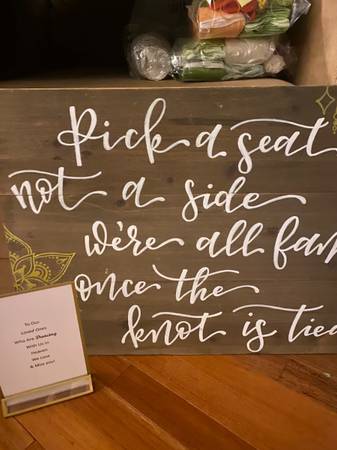 Pick a seat
not a side
we're all fam
once the
knot is tied
To Our
Loved Ones
Who Are Dancing
With Us in
Heaven
We Love
& Miss you!